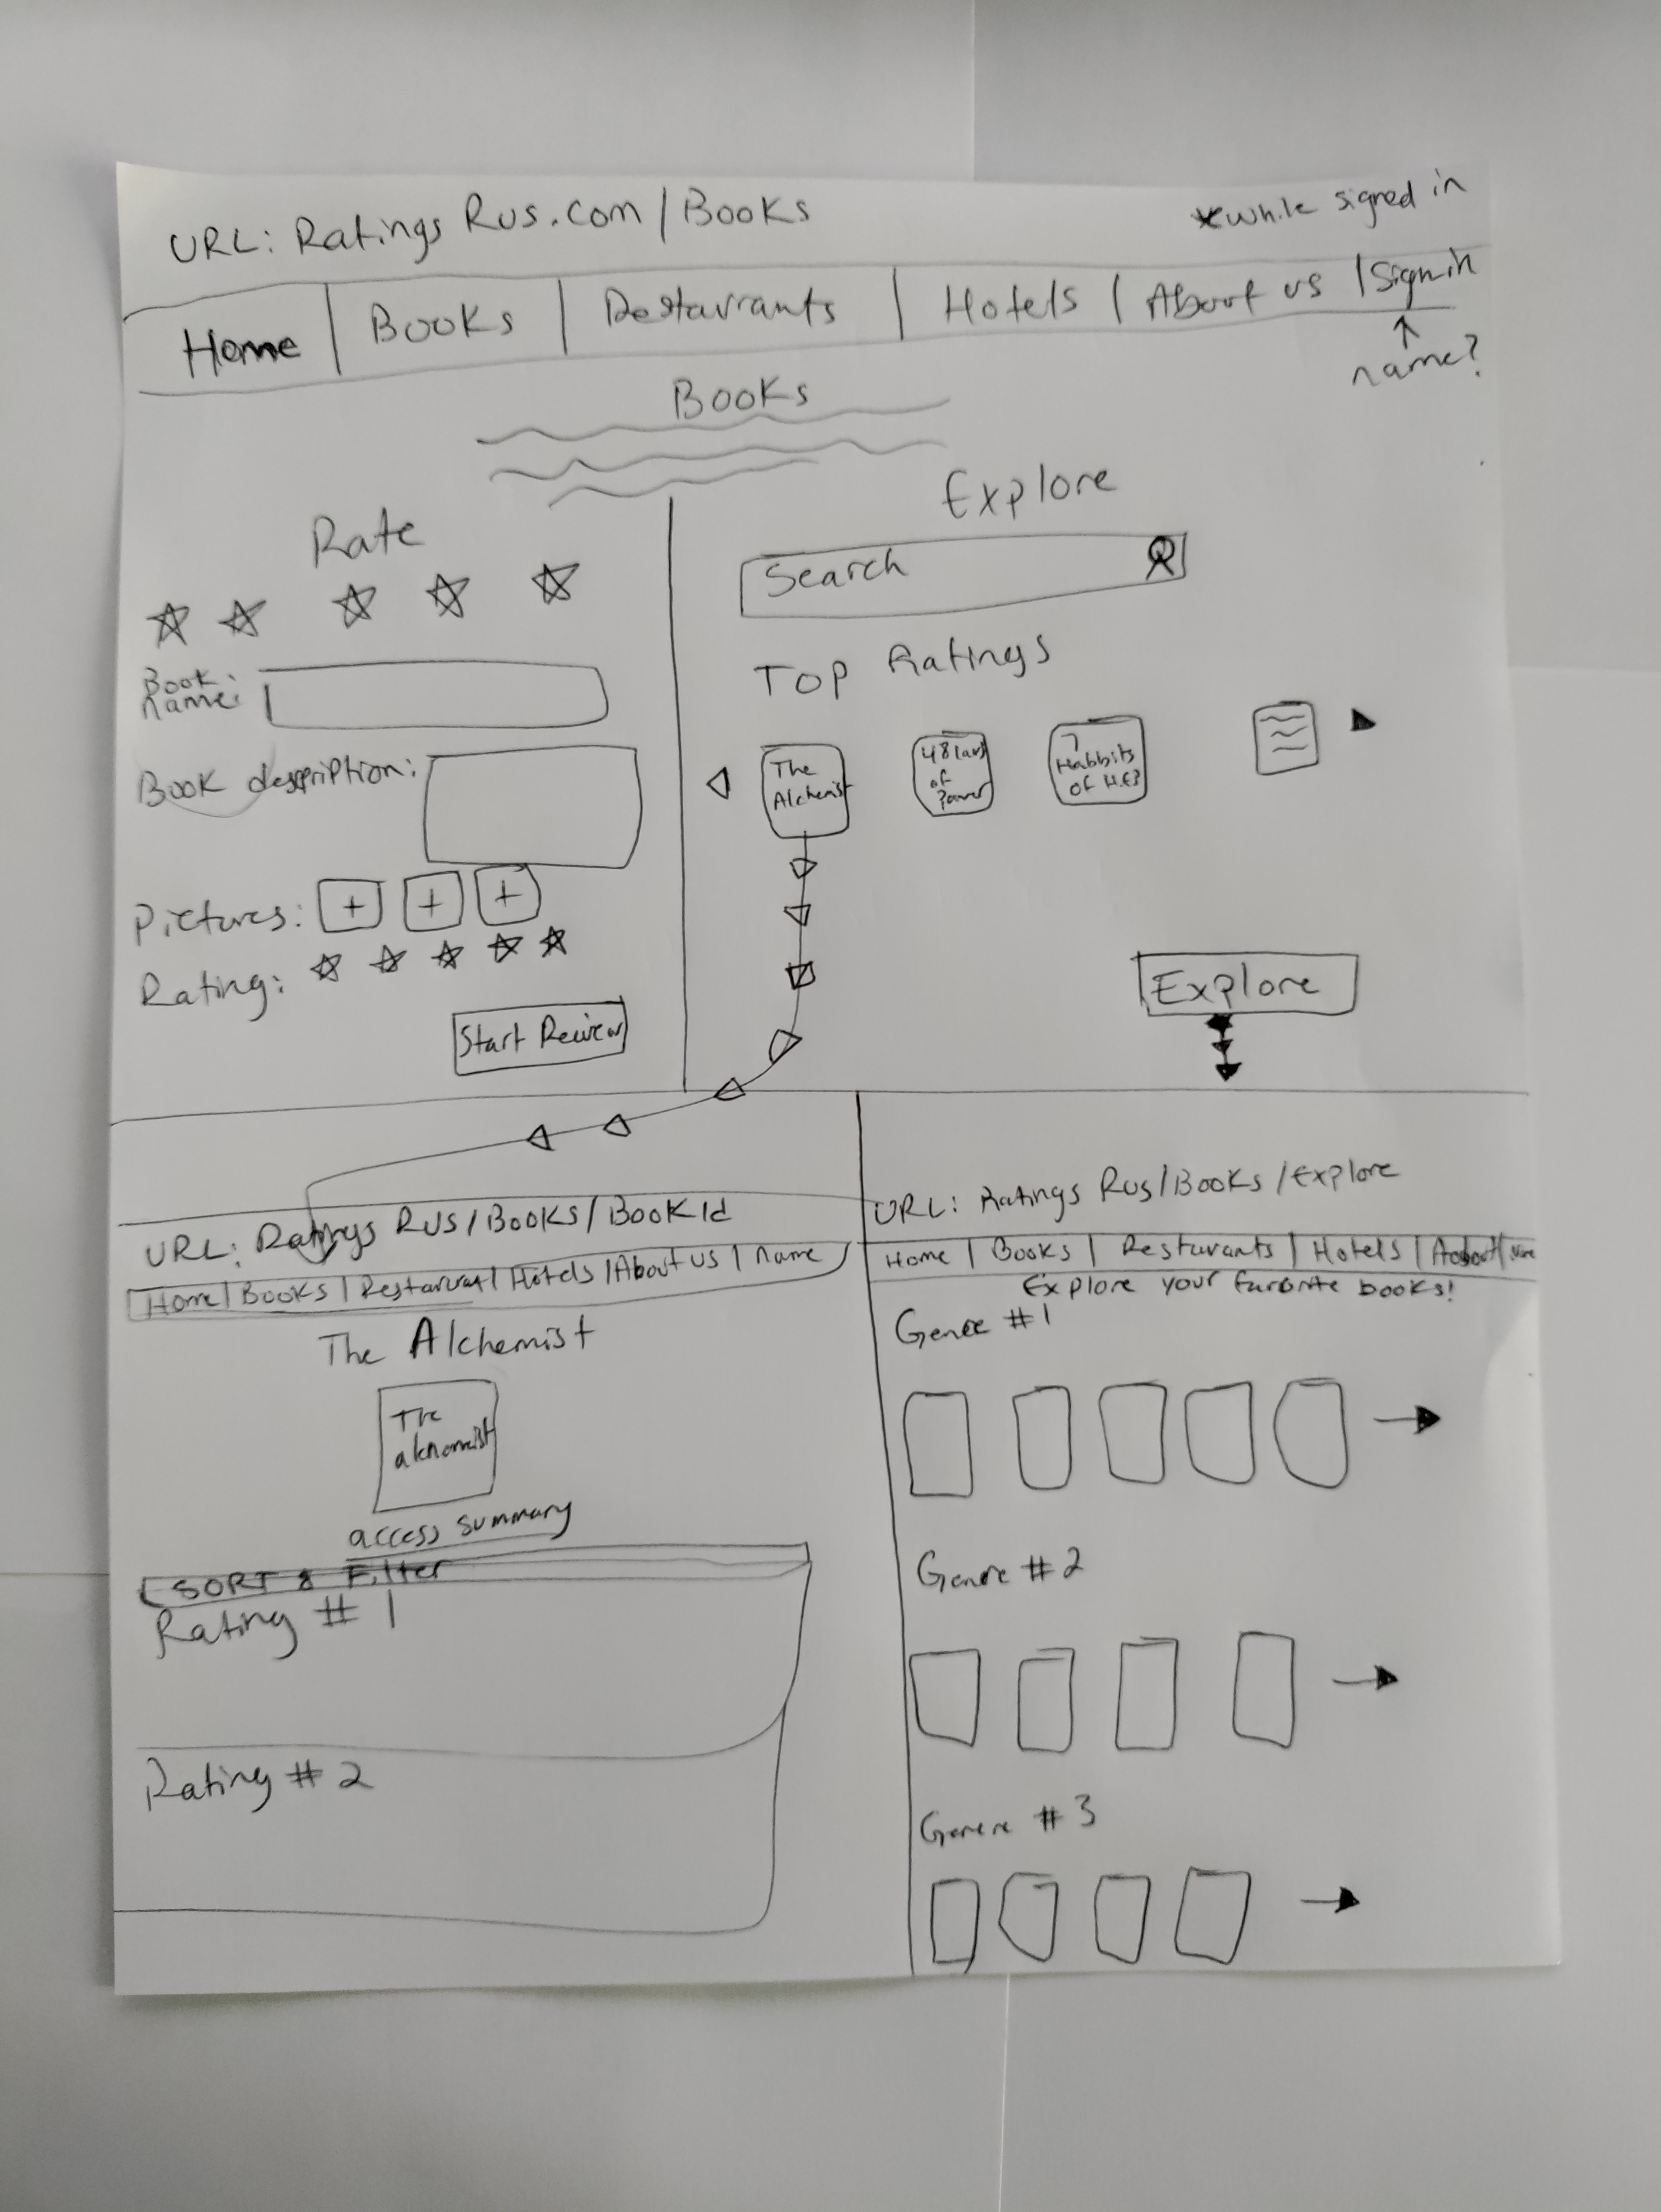 URL: Ratings Rus.com/Books
*while signed in
Home | Books | Restaurants | Hotels | About us | Sign in
name?
Books
Rate
Book name:
Book description:
Pictures: + + +
Rating:
Start Review
Explore
Search
Top Ratings
The Alchemist
48 laws of Power
7 Habbits of H.E.P
Explore
URL: Ratings Rus/Books/BookId
Home | Books | Restaurant | Hotels | About us | name
The Alchemist
The
access summary
SORT & Filter
Rating # 1
Rating # 2
URL: Ratings Rus/Books/Explore
Home | Books | Restaurants | Hotels | About |
Explore your favorite books!
Genre #1
Genre #2
Genre #3